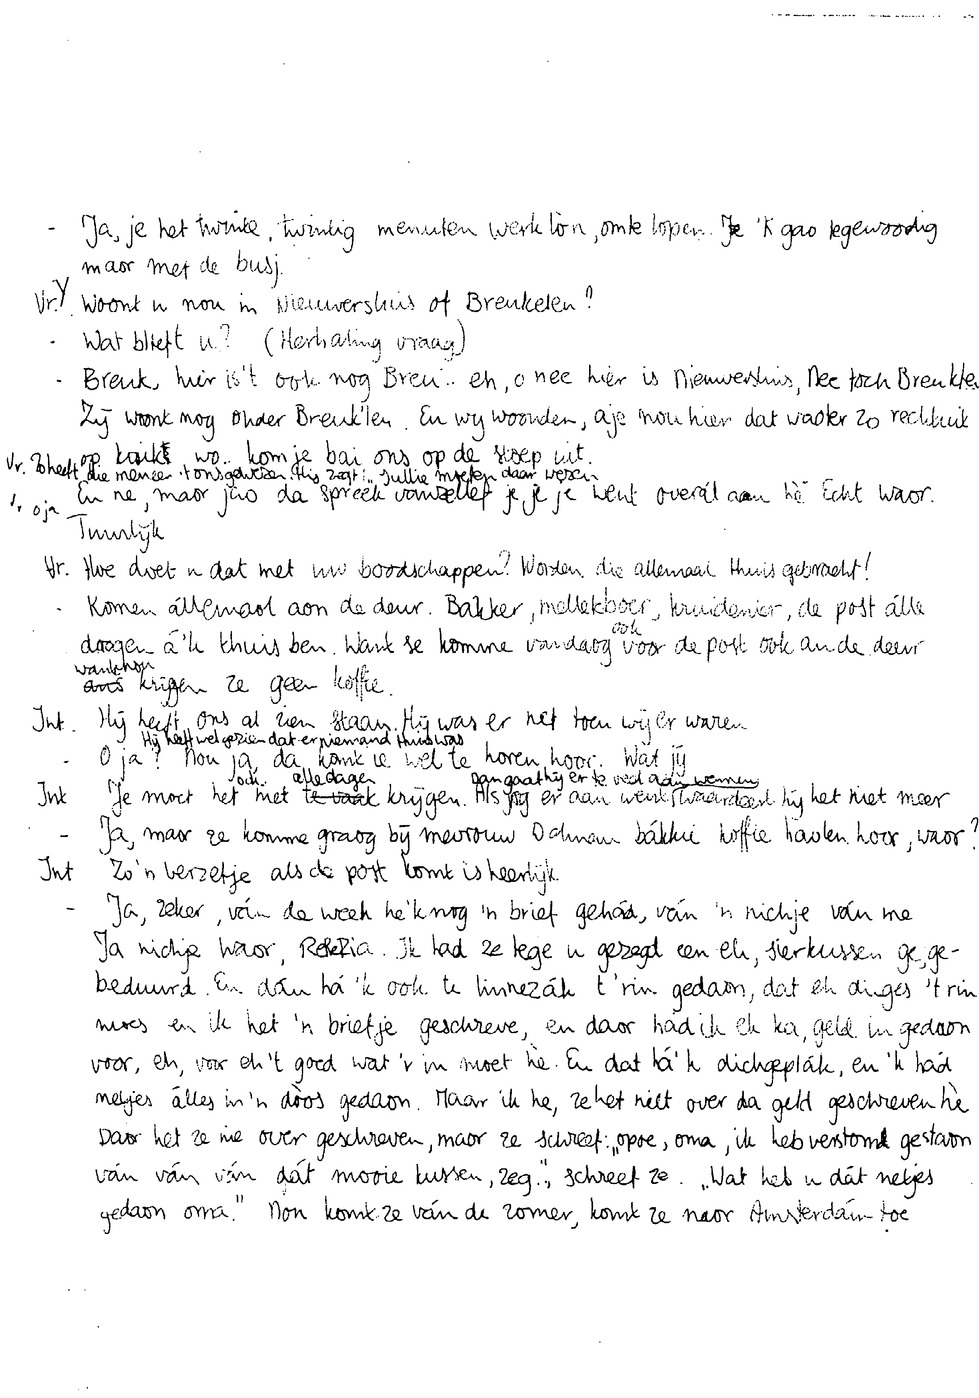 - Ja, je het twinte, twintig menuten werk lòn, omte lopen. Je 'k gao tegenwoodig
maor met de busj.
Vr. Woont u nou in Nieuwershuis of Breukelen?
- Wat blieft u? (Herhaling vraag)
- Breuk, hier is 't ook nog Breu... eh, o nee hier is Nieuwershuis, Nee toch Breukle
Zij woont nog onder Breuk'len. En wy woonden, aje nou hier dat vaoter zo rechtuit
op kaikt wo.. kom je bai ons op de stoep uit.
Vr. Zo heeft die meneer 't ons gewezen. Hij zegt: "Jullie moeten daar wezen
En ne, maor jao da spreek vanzellef je je je went overál aan hè Echt waor.
Vr. o ja
- Tuurlijk
Vr. Hoe doet u dat met uw boodschappen? Worden die allemaal thuis gebracht?
- Komen állemaol aon de deur. Bakker, mellekboer, kruidenier, de post álle
daogen á'k thuis ben. Want se komme vandaog ook voor de post ook an de deur
want hon
ans krijgen ze geen koffie.
Int. Hij heeft ons al zien staan. Hij was er net toen wij er waren
Hij heeft wel gezien dat er niemand thuis was
- O ja? Nou ja, da komt ie wel te horen hoor. Wat jij
ook alle dagen dan gaat hij er te veel aan wennen
Int Je moet het niet te vaak krijgen. Als jij er aan went waardeert hij het niet meer
- Ja, maor ze komme graog bij mevrouw Dolman bákkie koffie haolen hoor, waor?
Int Zo'n verzetje als de post komt is heerlijk
- Ja, zeker, ván de week he'k nog 'n brief gehád, ván 'n nichje ván me
Ja nichje waor, Rekzia. Ik had ze tege u gezegd een eh, sierkussen ge, ge-
beduurd. En dán há'k ook te linnezák t'rin gedaon, dat eh dinges 't rin
moes en ik het 'n briefje geschreve, en daor hád ik eh ka, geld in gedaon
voor, eh, vor eh 't goed wat 'r in moet hè. En dat há'k dichgeplák, en 'k hád
netjes álles in 'n dòos gedaon. Maar ik he, ze het niet over da geld geschreven hè
Daor het ze nie over geschreven, maor ze schreef: "opoe, oma, ik heb verstomd gestaon
ván ván ván dát mooie kussen, zeg.", schreef ze. "Wat heb u dát netjes
gedaon oma." Non komt ze ván de zomer, komt ze naor Amsterdám toe